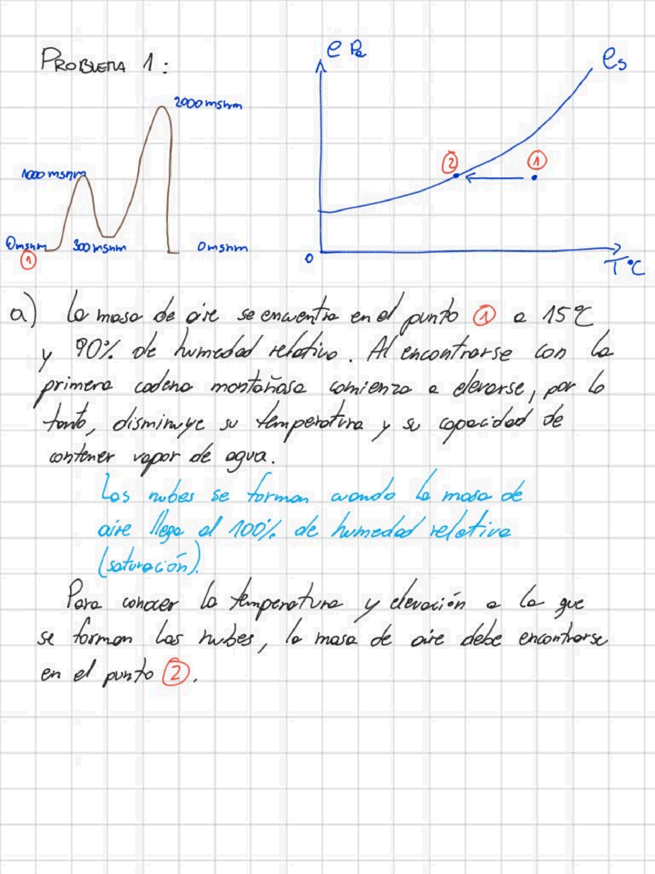 PROBLEMA 1:
e Pa
es
2000 msnm
1000 msnm
② ①
0 msnm 300 msnm 0 msnm
①
0
T°C
a) La masa de aire se encuentra en el punto ① a 15°C
y 90% de humedad relativa. Al encontrarse con la
primera cadena montañosa comienza a elevarse, por lo
tanto, disminuye su temperatura y su capacidad de
contener vapor de agua.
Las nubes se forman cuando la masa de
aire llega al 100% de humedad relativa
(saturación).
Para conocer la temperatura y elevación a la que
se forman las nubes, la masa de aire debe encontrarse
en el punto ②.